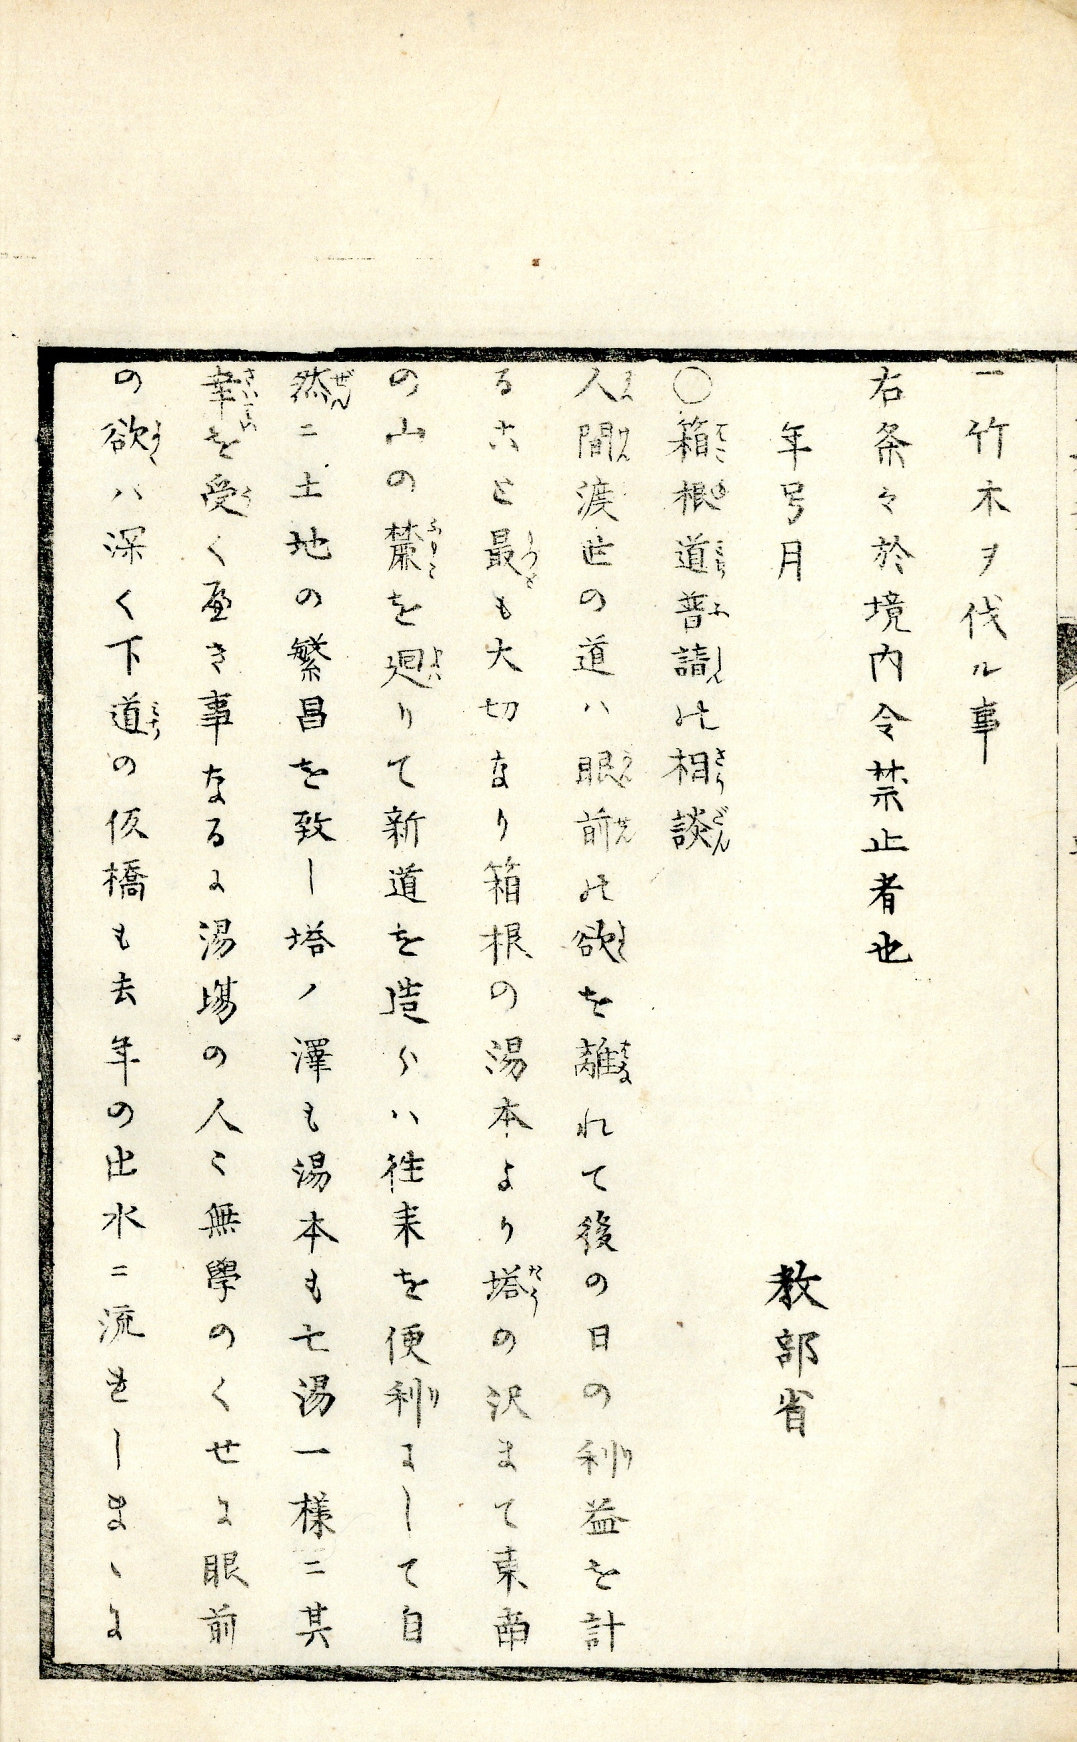 一竹木ヲ伐ル事
右条々於境内令禁止者也
年号月
教部省
〇箱根道普請の相談
人間渡世の道ハ眼前の欲を離れて後の日の利益を計
ること最も大切なり箱根の湯本より塔の沢まて東南
の山の麓を廻りて新道を造らハ往来を便利にして自
然ニ土地の繁昌を致し塔ノ澤も湯本も七湯一様ニ其
幸を受く可き事なるに湯場の人々無學のくせに眼前
の欲ハ深く下道の仮橋も去年の出水ニ流れしまゝに